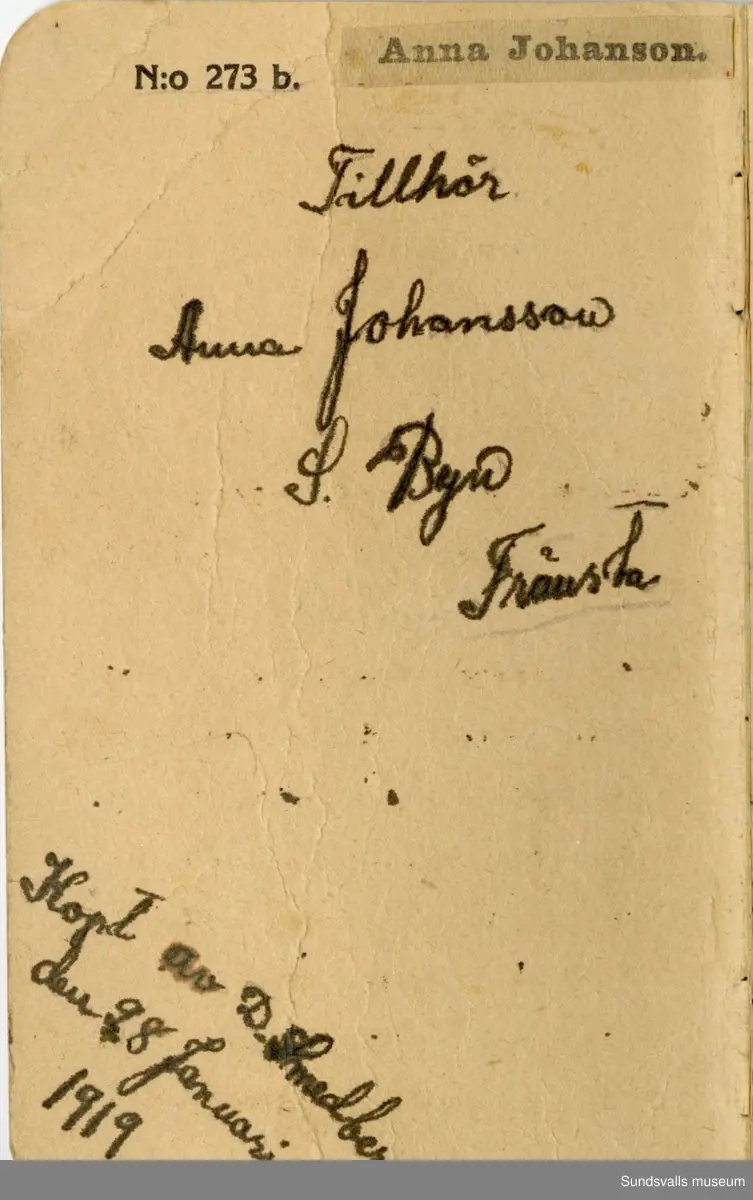 N:o 273 b.
Anna Johanson.
Tillhör
Anna Johansson
S. Byn
Fränsta
Köpt av D. Smedber
den 28 Januari
1919
Sundsvalls museum